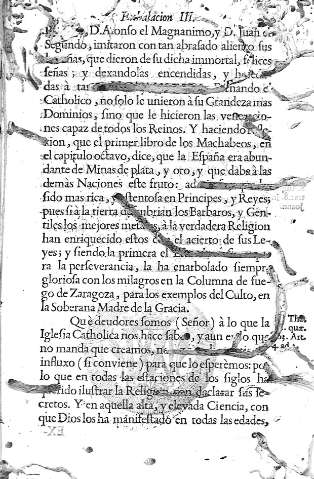 III.
D. Alonso el Magnanimo, y D. Juan
Segundo, imitaron con tan abrasado aliento sus
que dieron de su dicha immortal, felices
señas; y dexandolas encendidas, y
das à
Catholico, no solo le unieron à su Grandeza mas
Dominios, sino que le hicieron las
nes capaz de todos los Reinos. Y haciendo
xion, que el primer libro de los Machabeos, en
el capitulo octavo, dice, que la España era abun-
dante de Minas de plata, y oro, y que daba à las
demàs Naciones este fruto:
sido mas rica, y ostentosa en Principes, y Reyes,
pues si à la tierra descubrian los Barbaros, y Gen-
tiles los mejores metales, à la verdadera Religion
han enriquecido estos con el acierto de sus Le-
yes; y siendo la primera el
ra la perseverancia, la ha enarbolado siempre
gloriosa con los milagros en la Columna de fue-
go de Zaragoza, para los exemplos del Culto, en
la Soberana Madre de la Gracia.
Què deudores somos (Señor) à lo que la
Iglesia Catholica nos hace saber, y aun en lo que
no manda que creamos,
influxo (si conviene) para que lo esperèmos: por
lo que en todas las estaciones de los siglos ha
podido ilustrar la Religion, con declarar sus se-
cretos. Y en aquella alta, y elevada Ciencia, con
que Dios los ha manifestado en todas las edades,
EX-
Tho.
quæ.
Art.
4. ad